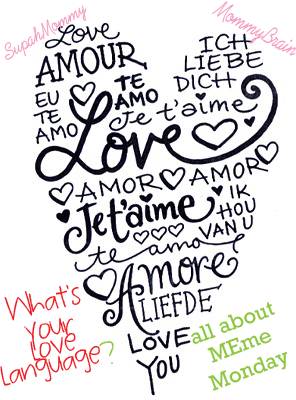 SupahMommy
MommyBrain
Love
AMOUR
ICH
LIEBE
DICH
EU
TE
AMO
TE
AMO
Je t'aime
Love
AMOR
AMOR
Je t'aime
IK
HOU
VAN U
te amo
Amore
LIEFDE
LOVE
YOU
What's
your
love
language?
all about
MEme
Monday